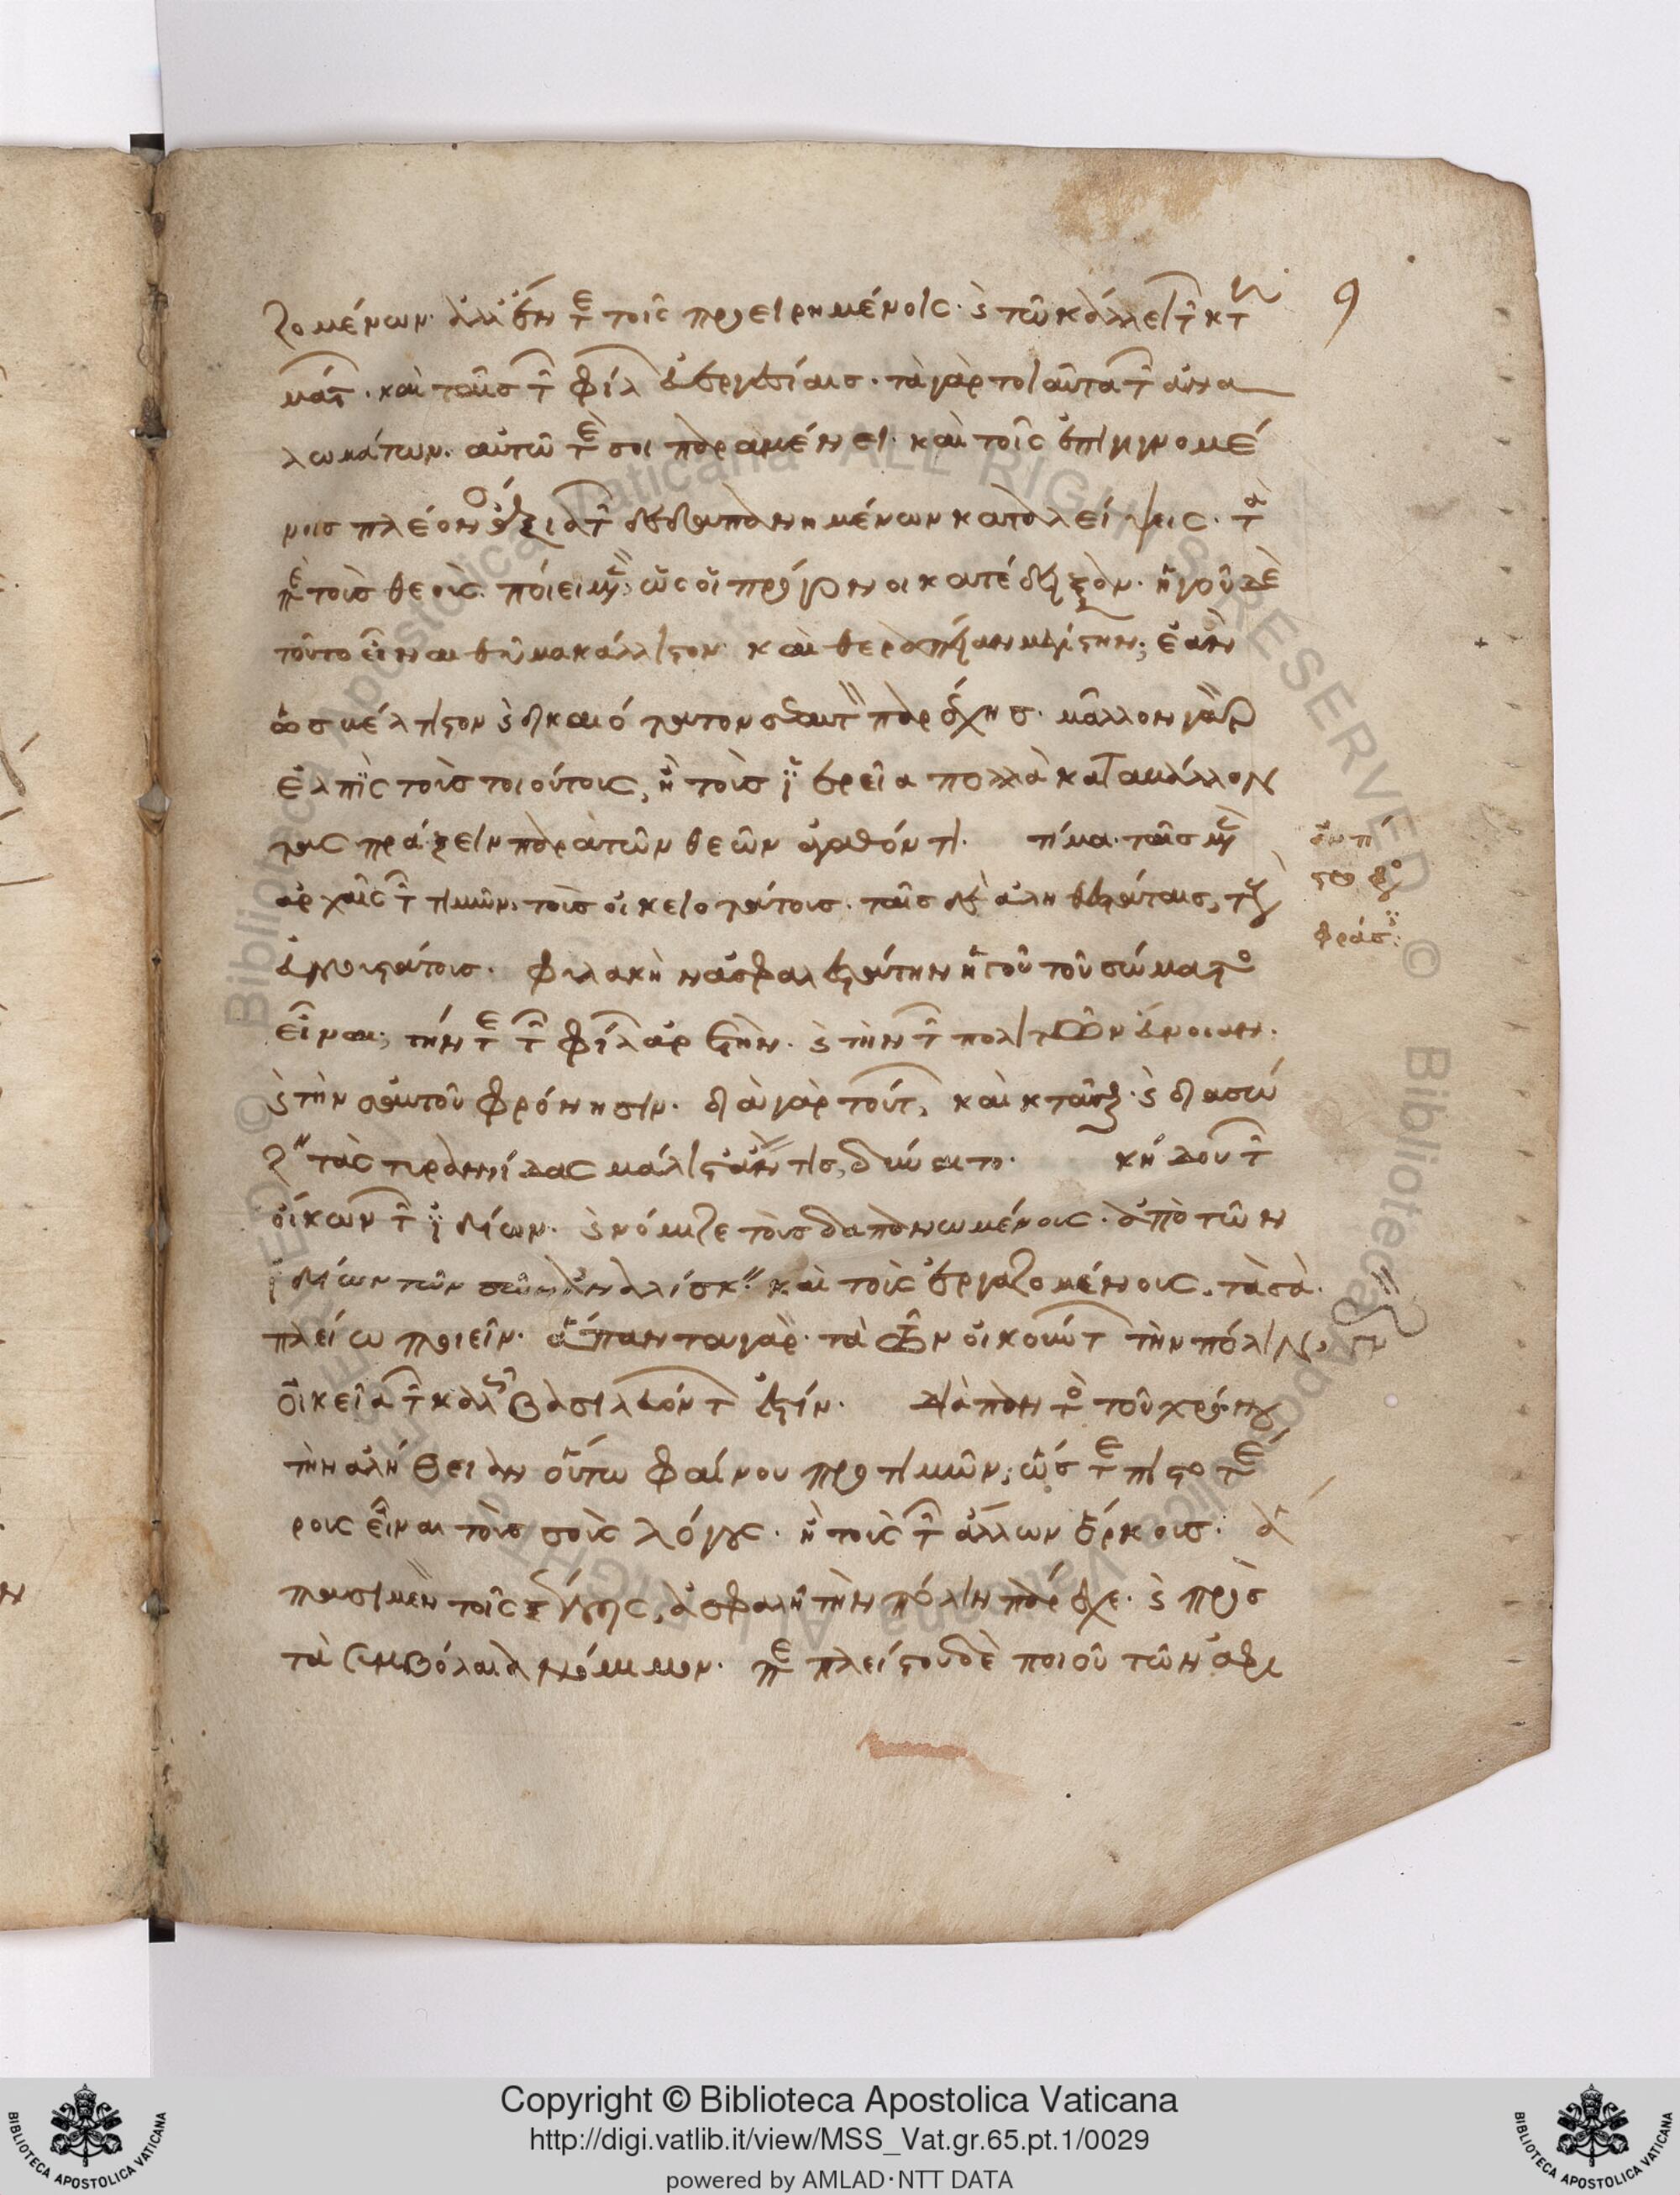 ζομένων. ἀλλ' ἔν τε τοῖς προειρημένοις. καὶ τῶ κάλλει τῶν κτη
μάτων. καὶ ταῖς τῶν φίλων εὐεργεσίαις. τὰ γὰρ τοιαῦτα τῶν ἀνα
λωμάτων. αὐτῶ τε σοι παραμένει. καὶ τοῖς ἐπιγιγνομέ
νοις πλέονος ἄξια τῶν δεδαπανημένων καταλείψεις. τὰ
περὶ τοὺς θεοὺς ποίει μὲν, ὡς οἱ πρόγονοι κατέδειξαν. ἡγοῦ δὲ
τοῦτο εἶναι θῦμα κάλλιστον καὶ θεραπείαν μεγίστην, ἐὰν
ὡς βέλτιστον καὶ δικαιότατον σαυτὸν παρέχης. μᾶλλον γὰρ
ἐλπὶς τοὺς τοιούτους, ἢ τοὺς ἱερεῖα πολλὰ καταβάλλον
τας πράξειν παρὰ τῶν θεῶν ἀγαθόν τι. τίμα ταῖς μὲν
ἀρχαῖς τῶν τιμῶν τοὺς οἰκειοτάτους. ταῖς δὲ ἀληθεστάταις, τοὺς
εὐνουστάτους. φυλακὴν ἀσφαλεστάτην ἡγοῦ τοῦ σώματος
εἶναι, τήν τε τῶν φίλων ἀρετὴν. καὶ τὴν τῶν πολιτῶν εὔνοιαν.
καὶ τὴν σαυτοῦ φρόνησιν. διὰ γὰρ τούτων, καὶ κτᾶσθαι καὶ διασώ
ζειν τὰς τυραννίδας μάλιστ' ἄν τις, δύναιτο. κήδου τῶν
οἴκων τῶν ἰδίων. καὶ νόμιζε τοὺς δαπανωμένους. ἀπὸ τῶν
ἰδίων τῶν σῶν ἀναλίσκειν καὶ τοὺς ἐργαζομένους. τὰ σὰ
πλείω ποιεῖν. ἅπαντα γὰρ τὰ τῶν οἰκούντων τὴν πόλιν,
οἰκεῖα τῶν καλῶς βασιλευόντων ἐστίν. διὰ παντὸς τοῦ χρόνου
τὴν ἀλήθειαν οὕτω φαίνου προτιμῶν, ὥστε πιστοτέ
ρους εἶναι τοὺς σοὺς λόγους. ἢ τοὺς τῶν ἄλλων ὅρκους. ἅ
πασι μὲν τοῖς ξένοις, ἀσφαλῆ τὴν πόλιν πάρεχε. καὶ πρὸς
τὰ συμβόλαια νόμιμον. περὶ πλείστου δὲ ποιοῦ τῶν ἀφι
Copyright © Biblioteca Apostolica Vaticana
http://digi.vatlib.it/view/MSS_Vat.gr.65.pt.1/0029
powered by AMLAD·NTT DATA
BIBLIOTECA APOSTOLICA VATICANA
BIBLIOTECA APOSTOLICA VATICANA